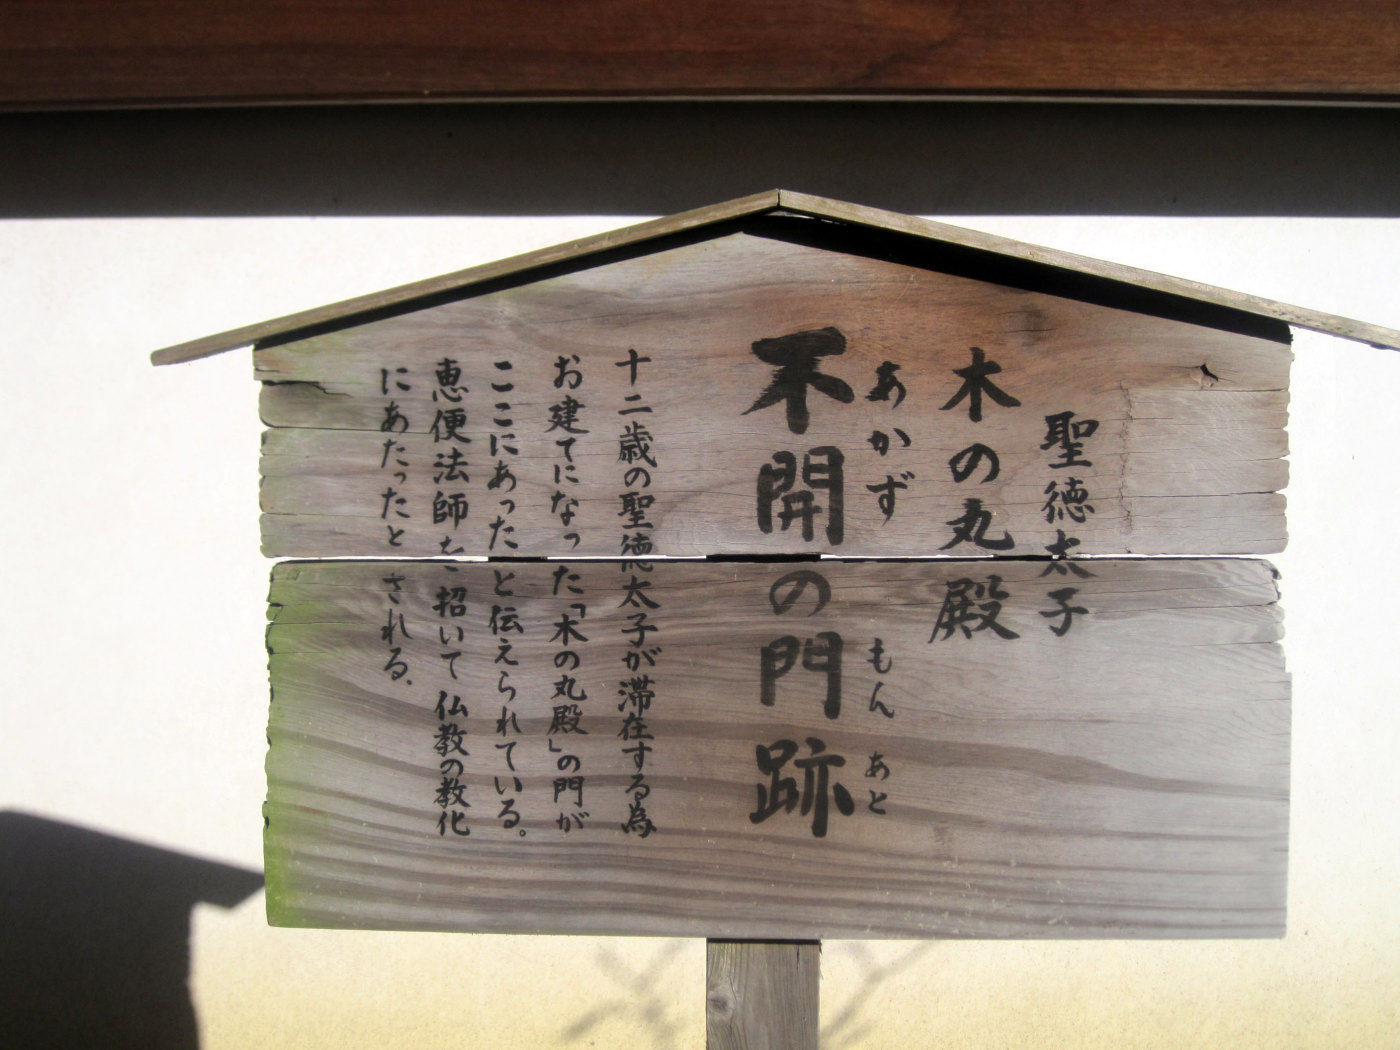 聖徳太子
木の丸殿
あかず もん あと
不開の門跡
十二歳の聖徳太子が滞在する為
お建てになった「木の丸殿」の門が
ここにあったと伝えられている。
恵便法師を招いて仏教の教化
にあたったとされる.